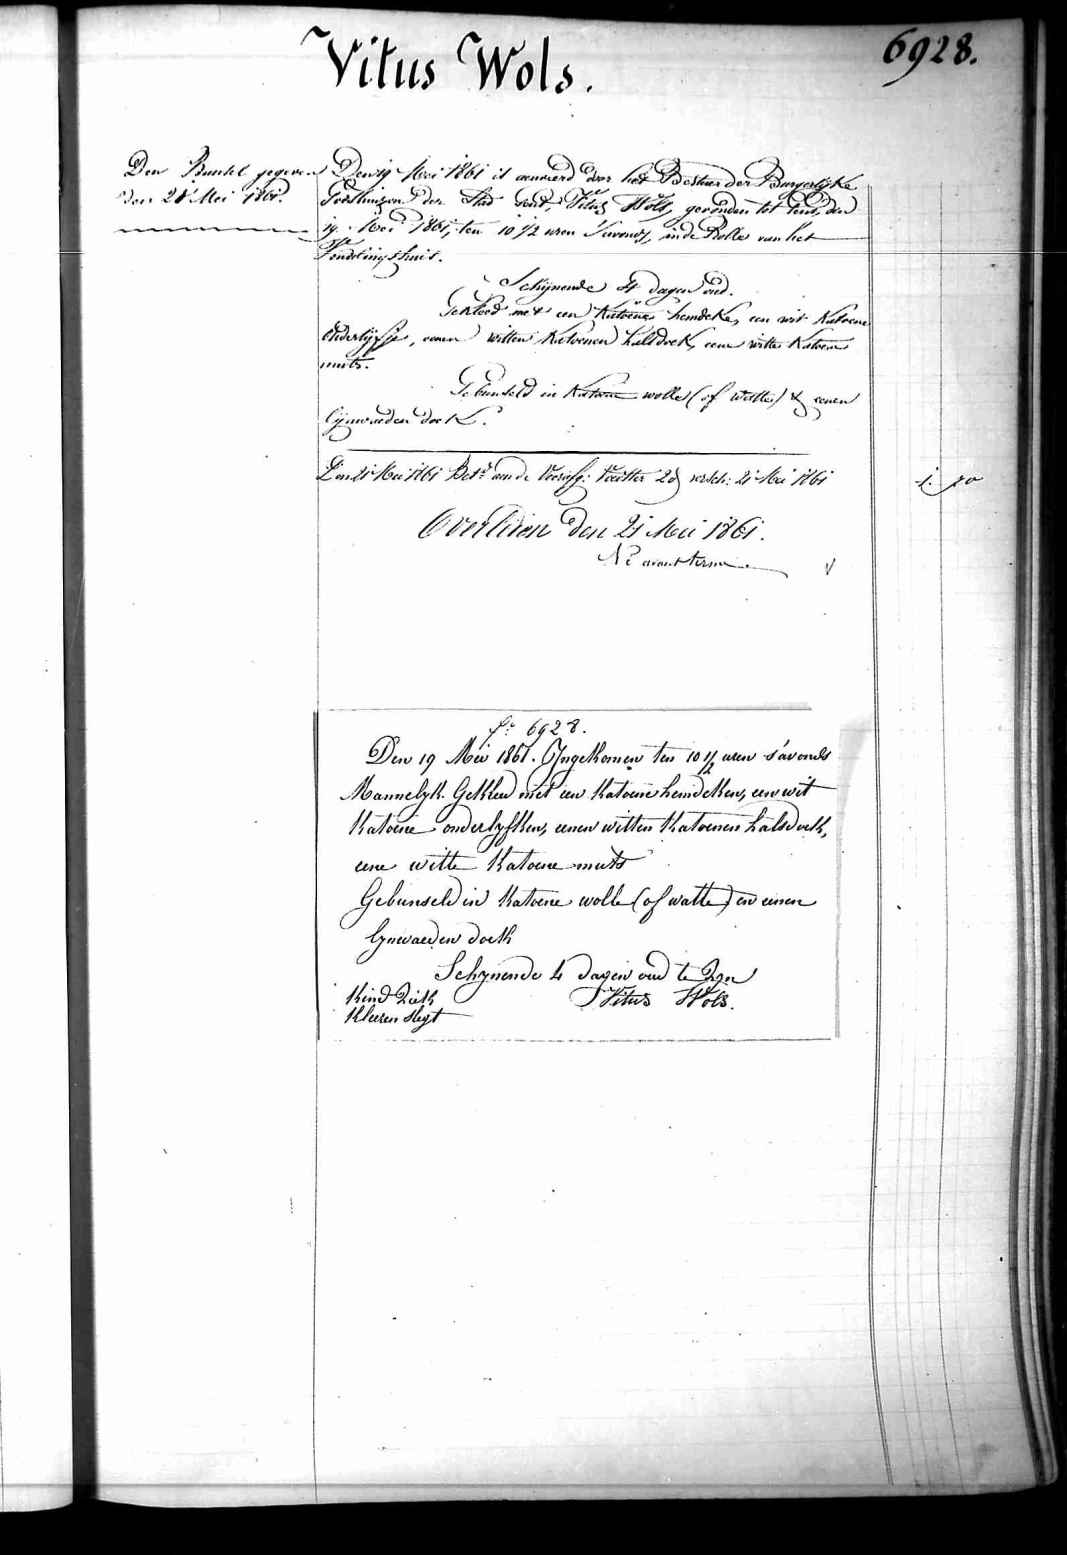 Vitus Wols.
6928.
Den Bundel gegeven
den 21 Mei 1861.
Den 19 Mei 1861 is aenveerd door het Bestuer der Burgerlyke
Godshuizen der Stad Gent, Vitus Wols, gevonden tot Gent, den
19 Mei 1861, ten 10 1/2 uren s'avonds, in de Rolle van het
Vondelingshuis.
Schijnende 4 dagen oud.
Gekleed met een Katoene hemdeke, een wit Katoene
Onderlijfje, eenen witten Katoenen halsdoek, eene witte Katoene
muts.
Gebunseld in Katoene wolle (of watte) & eenen
lijnwaeden doek.
Den 21 Mei 1861 Betd. aen de Voedster 2 d versch: 21 Mei 1861
1. 50
Overleden den 21 Mei 1861.
Né avant terme
fo. 6928.
Den 19 Mei 1861. Ingekomen ten 10 1/2 uren s'avonds
Mannelyk. Gekleed met een Katoene hemdeken, een wit
Katoene onderlyfken, eenen witten Katoenen halsdoek,
eene witte Katoene muts
Gebunseld in Katoene wolle (of watte) en eenen
lynwaeden doek
Schynende 4 dagen oud te zyn
Kind Ziek
Vitus Wols.
Kleeren slegt